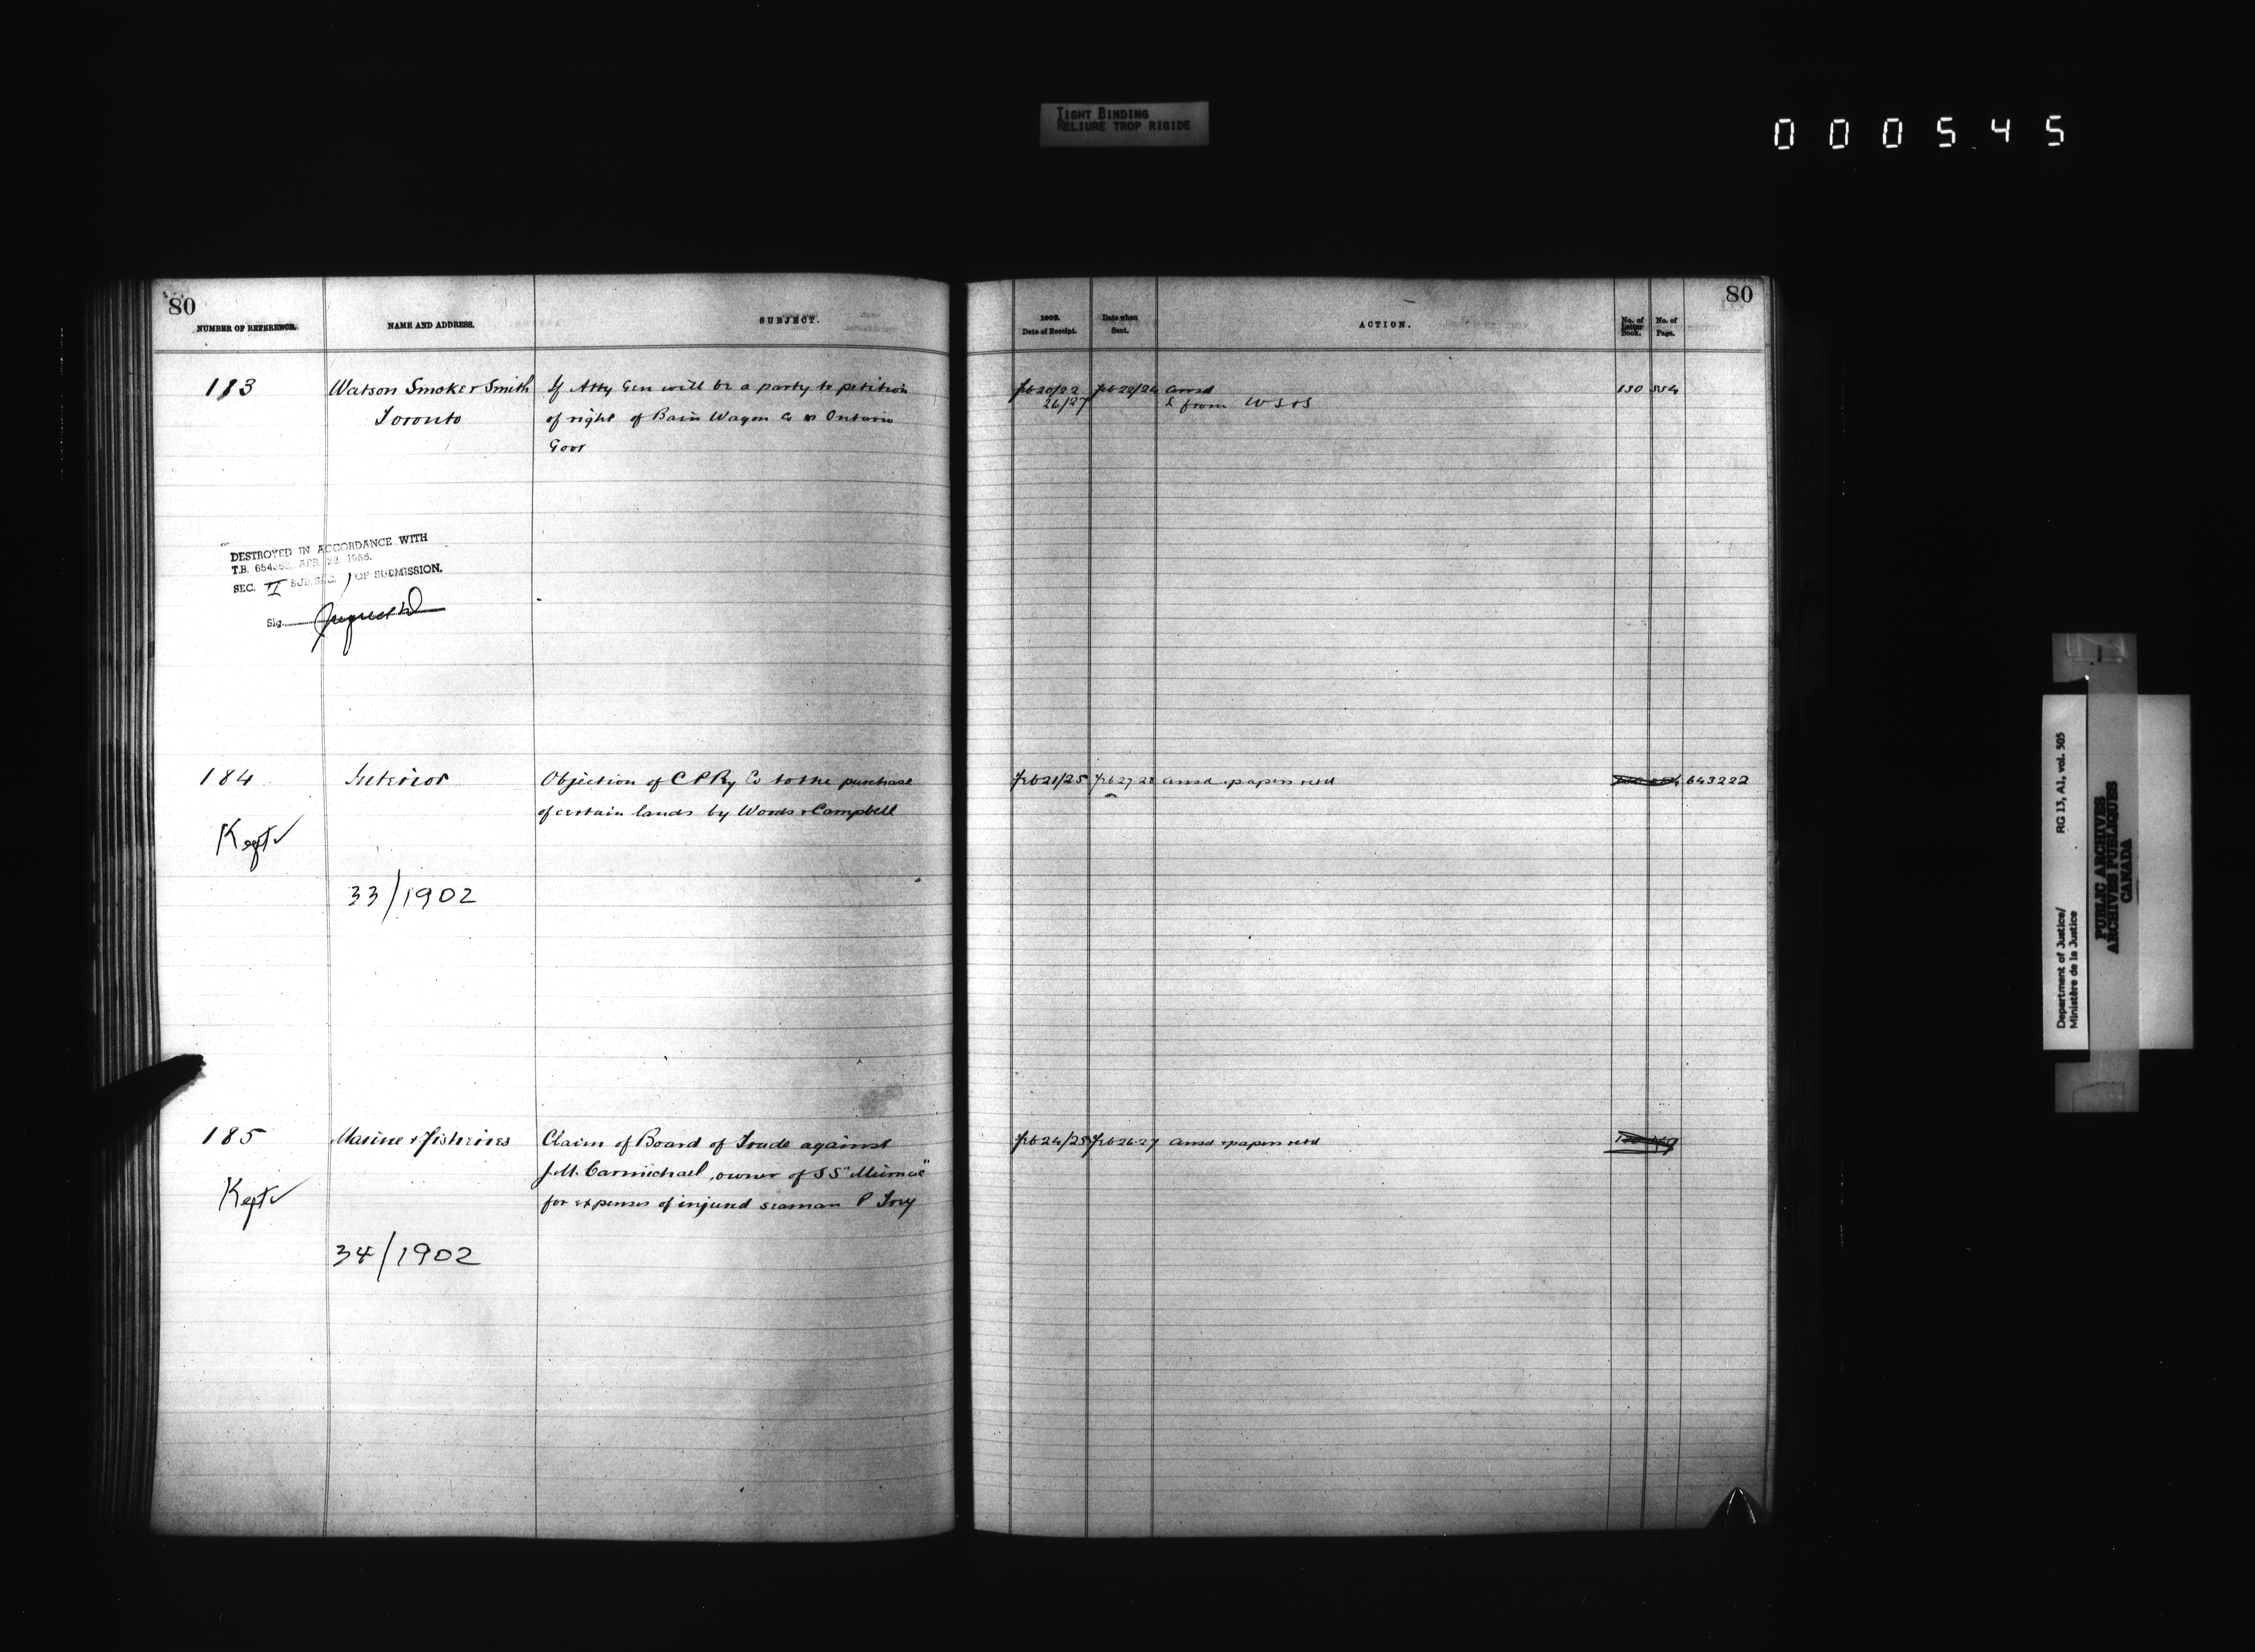 TIGHT BINDING
RELIURE TROP RIGIDE
000545
80
NUMBER OF REFERENCE.
NAME AND ADDRESS.
SUBJECT.
183
Watson Smoke & Smith
Toronto
If Atty Gen will be a party to petition
of right of Bain Wagon Co vs Ontario
Govt
DESTROYED IN ACCORDANCE WITH
T.B. APR. 22,
SEC. II SUB.SEC. 1 OF SUBMISSION.
Sig.
184
Interior
Objection of C P Ry Co to the purchase
of certain lands by Woods & Campbell
Kept ✓
33/1902
185
Marine & Fisheries
Claim of Board of Trade against
J.M. Carmichael, owner of SS "Micmac"
for expenses of injured seaman P
Kept ✓
34/1902
80
1902.
Date of Receipt.
Date when
Sent.
ACTION.
No. of
Letter
Book.
No. of
Page.
Feb 20/22
Feb 22/26
ansd
130
26/27
L from W S & S
Feb 21/25
Feb 27 28
ansd & papers retd
643222
Feb 24/25
Feb 26-27
ansd & papers retd
Department of Justice/
Ministère de la Justice
RG 13, A1, vol. 505
PUBLIC ARCHIVES
ARCHIVES PUBLIQUES
CANADA